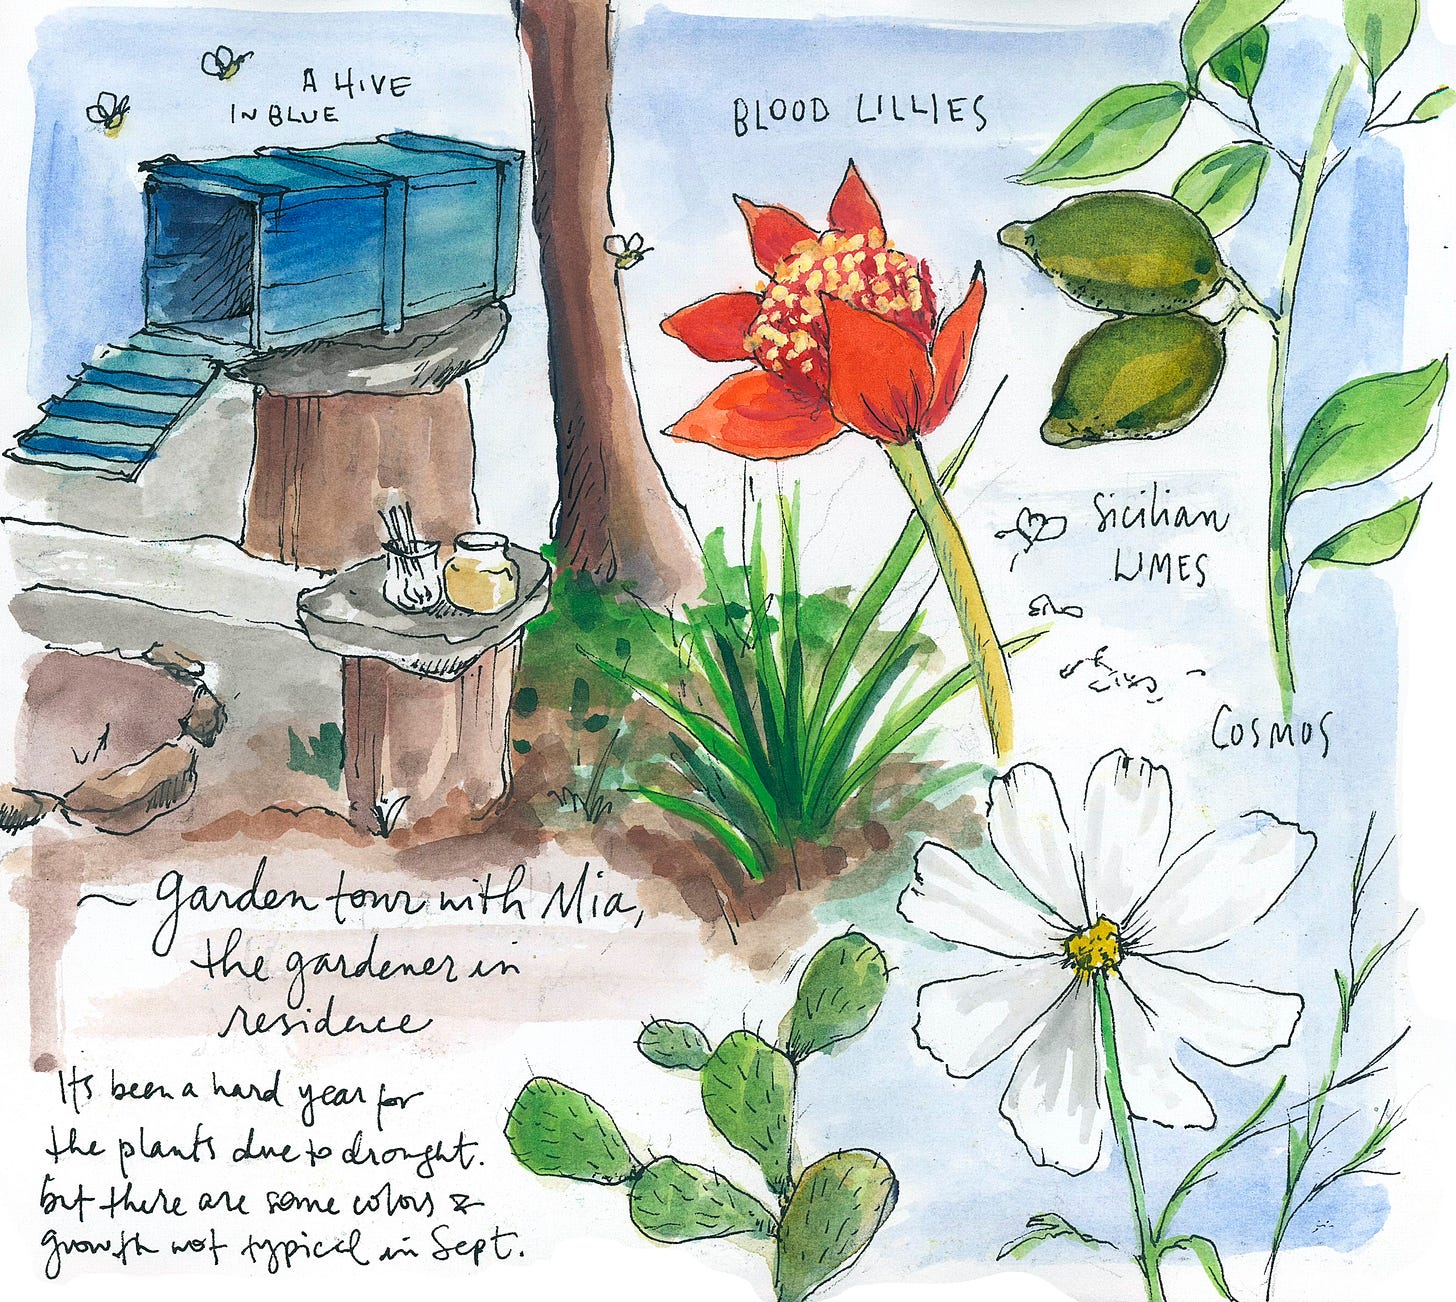 A HIVE
IN BLUE
BLOOD LILLIES
Sicilian
LIMES
COSMOS
~ garden tour with Mia,
the gardener in
residence
It's been a hard year for
the plants due to drought.
but there are some colors &
growth not typical in Sept.